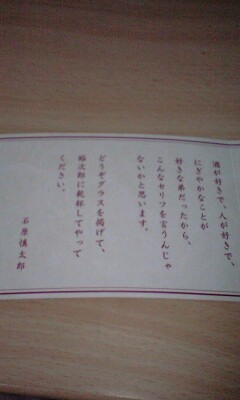 酒が好きで、人が好きで、
にぎやかなことが
好きな弟だったから、
こんなセリフを言うんじゃ
ないかと思います。
どうぞグラスを掲げて、
裕次郎に乾杯してやって
ください。
石原慎太郎